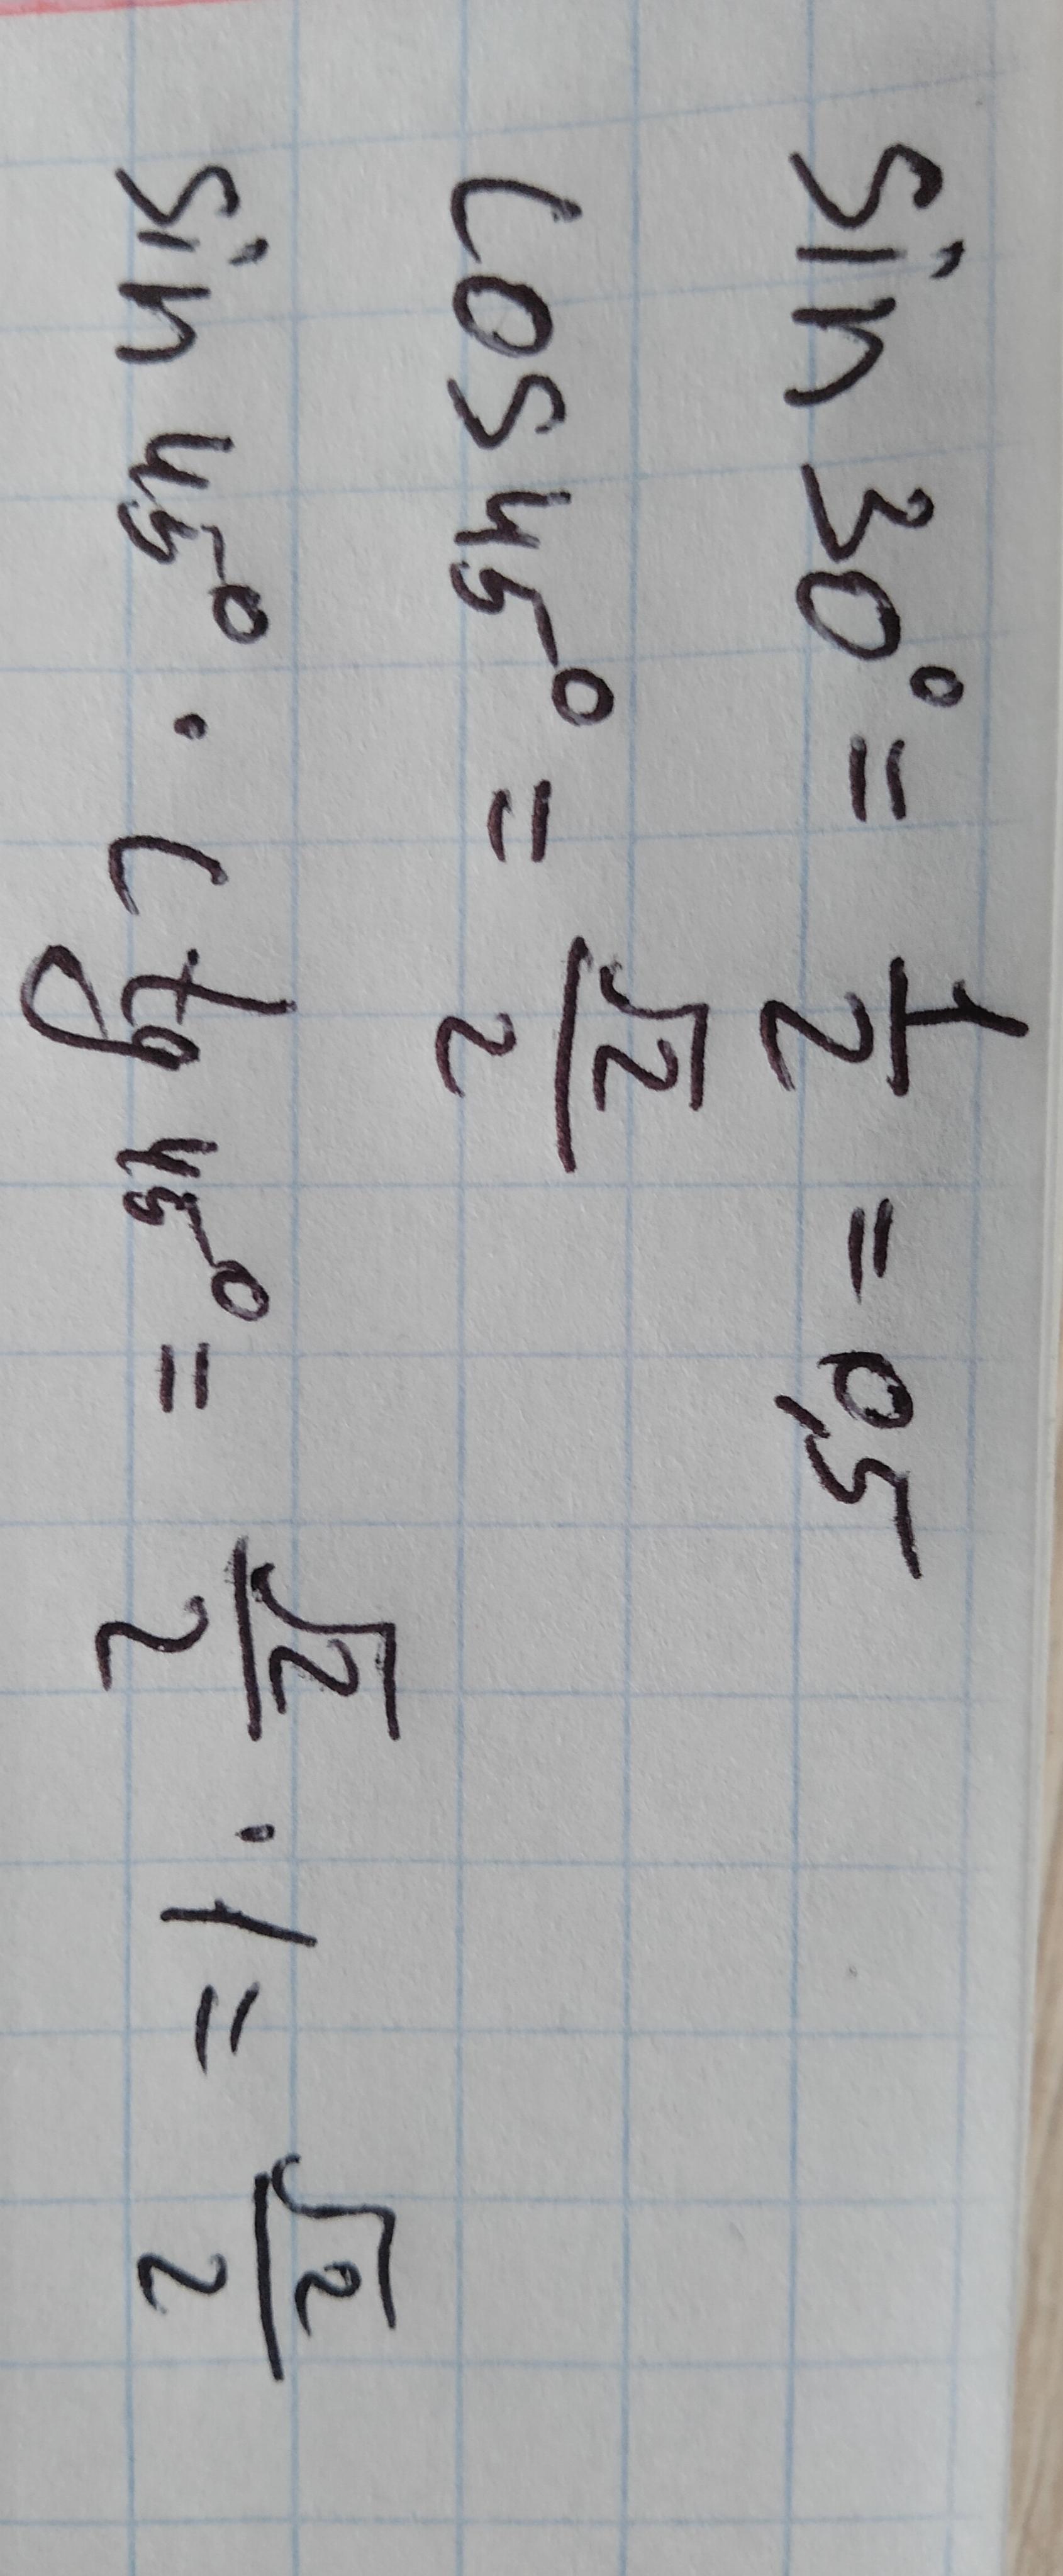 sin 30° = 1/2 = 0,5
cos 45° = √2/2
sin 45° · ctg 45° = √2/2 · 1 = √2/2